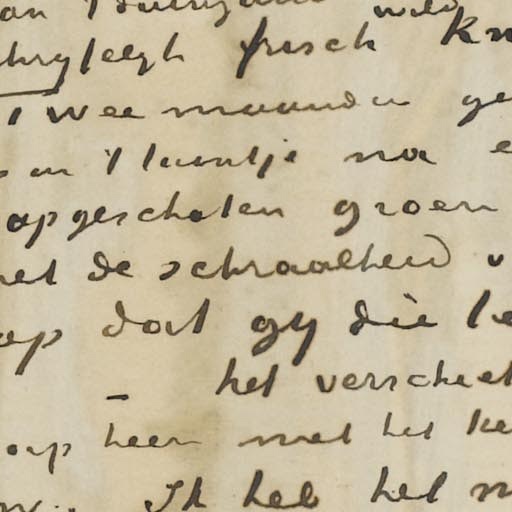 frisch
Twee maanden ge
't laantje na e
opgeschoten groen
het de schraalheid v
op dat gij die le
– het verscheel
op heen met het ke
Ik heb het